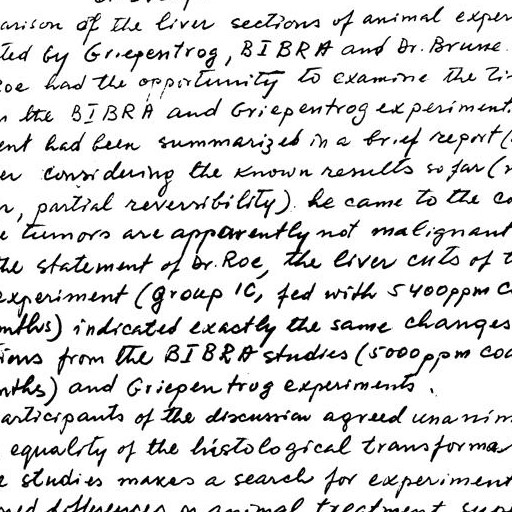 arison of the liver sections of animal exper
ted by Griepentrog, BIBRA and Dr. Brune.
Roe had the opportunity to examine the li
n the BIBRA and Griepentrog experiment.
ent had been summarized in a brief report (
er considering the known results so far (
r, partial reversibility). he came to the co
e tumors are apparently not malignant
the statement of Dr. Roe, the liver cuts of t
experiment (group 1C, fed with 5400ppm c
onths) indicated exactly the same changes
tions from the BIBRA studies (5000ppm cou
nths) and Griepentrog experiments.
articipants of the discussion agreed unanim
equality of the histological transforma
e studies makes a search for experiment
differences animal treatment